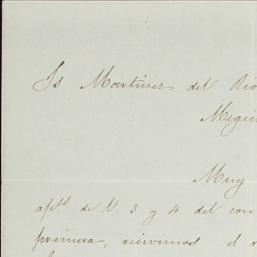 Ss Martinez del Rio
Megic
Muy
apts de V. 3 y 4 del corr
primera, recivimos el r